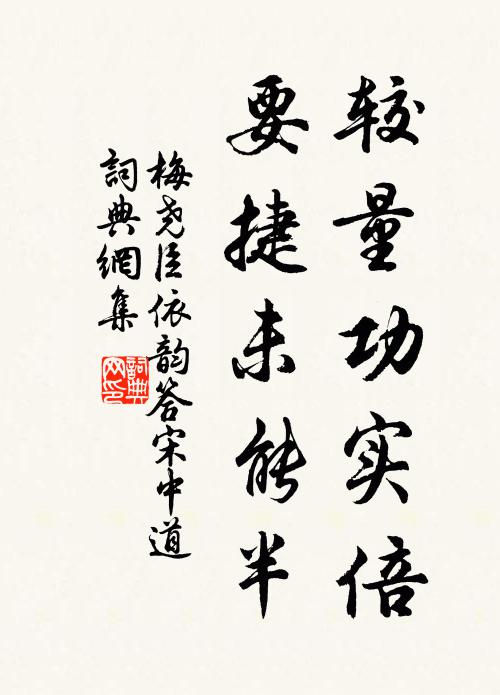 较量功实倍
要捷未能半
梅尧臣依韵答宋中道
詞典網集
詞典网印